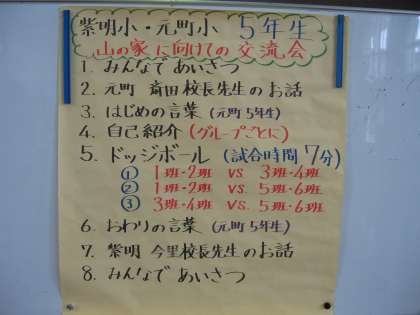 紫明小・元町小 5年生
山の家に向けての交流会
1. みんなであいさつ
2. 元町 斎田校長先生のお話
3. はじめの言葉 (元町5年生)
4. 自己紹介 (グループごとに)
5. ドッジボール (試合時間 7分)
① 1班・2班 VS 3班・4班
② 1班・2班 VS. 5班・6班
③ 3班・4班 VS. 5班・6班
6. おわりの言葉 (元町5年生)
7. 紫明 今里校長先生のお話
8. みんなであいさつ